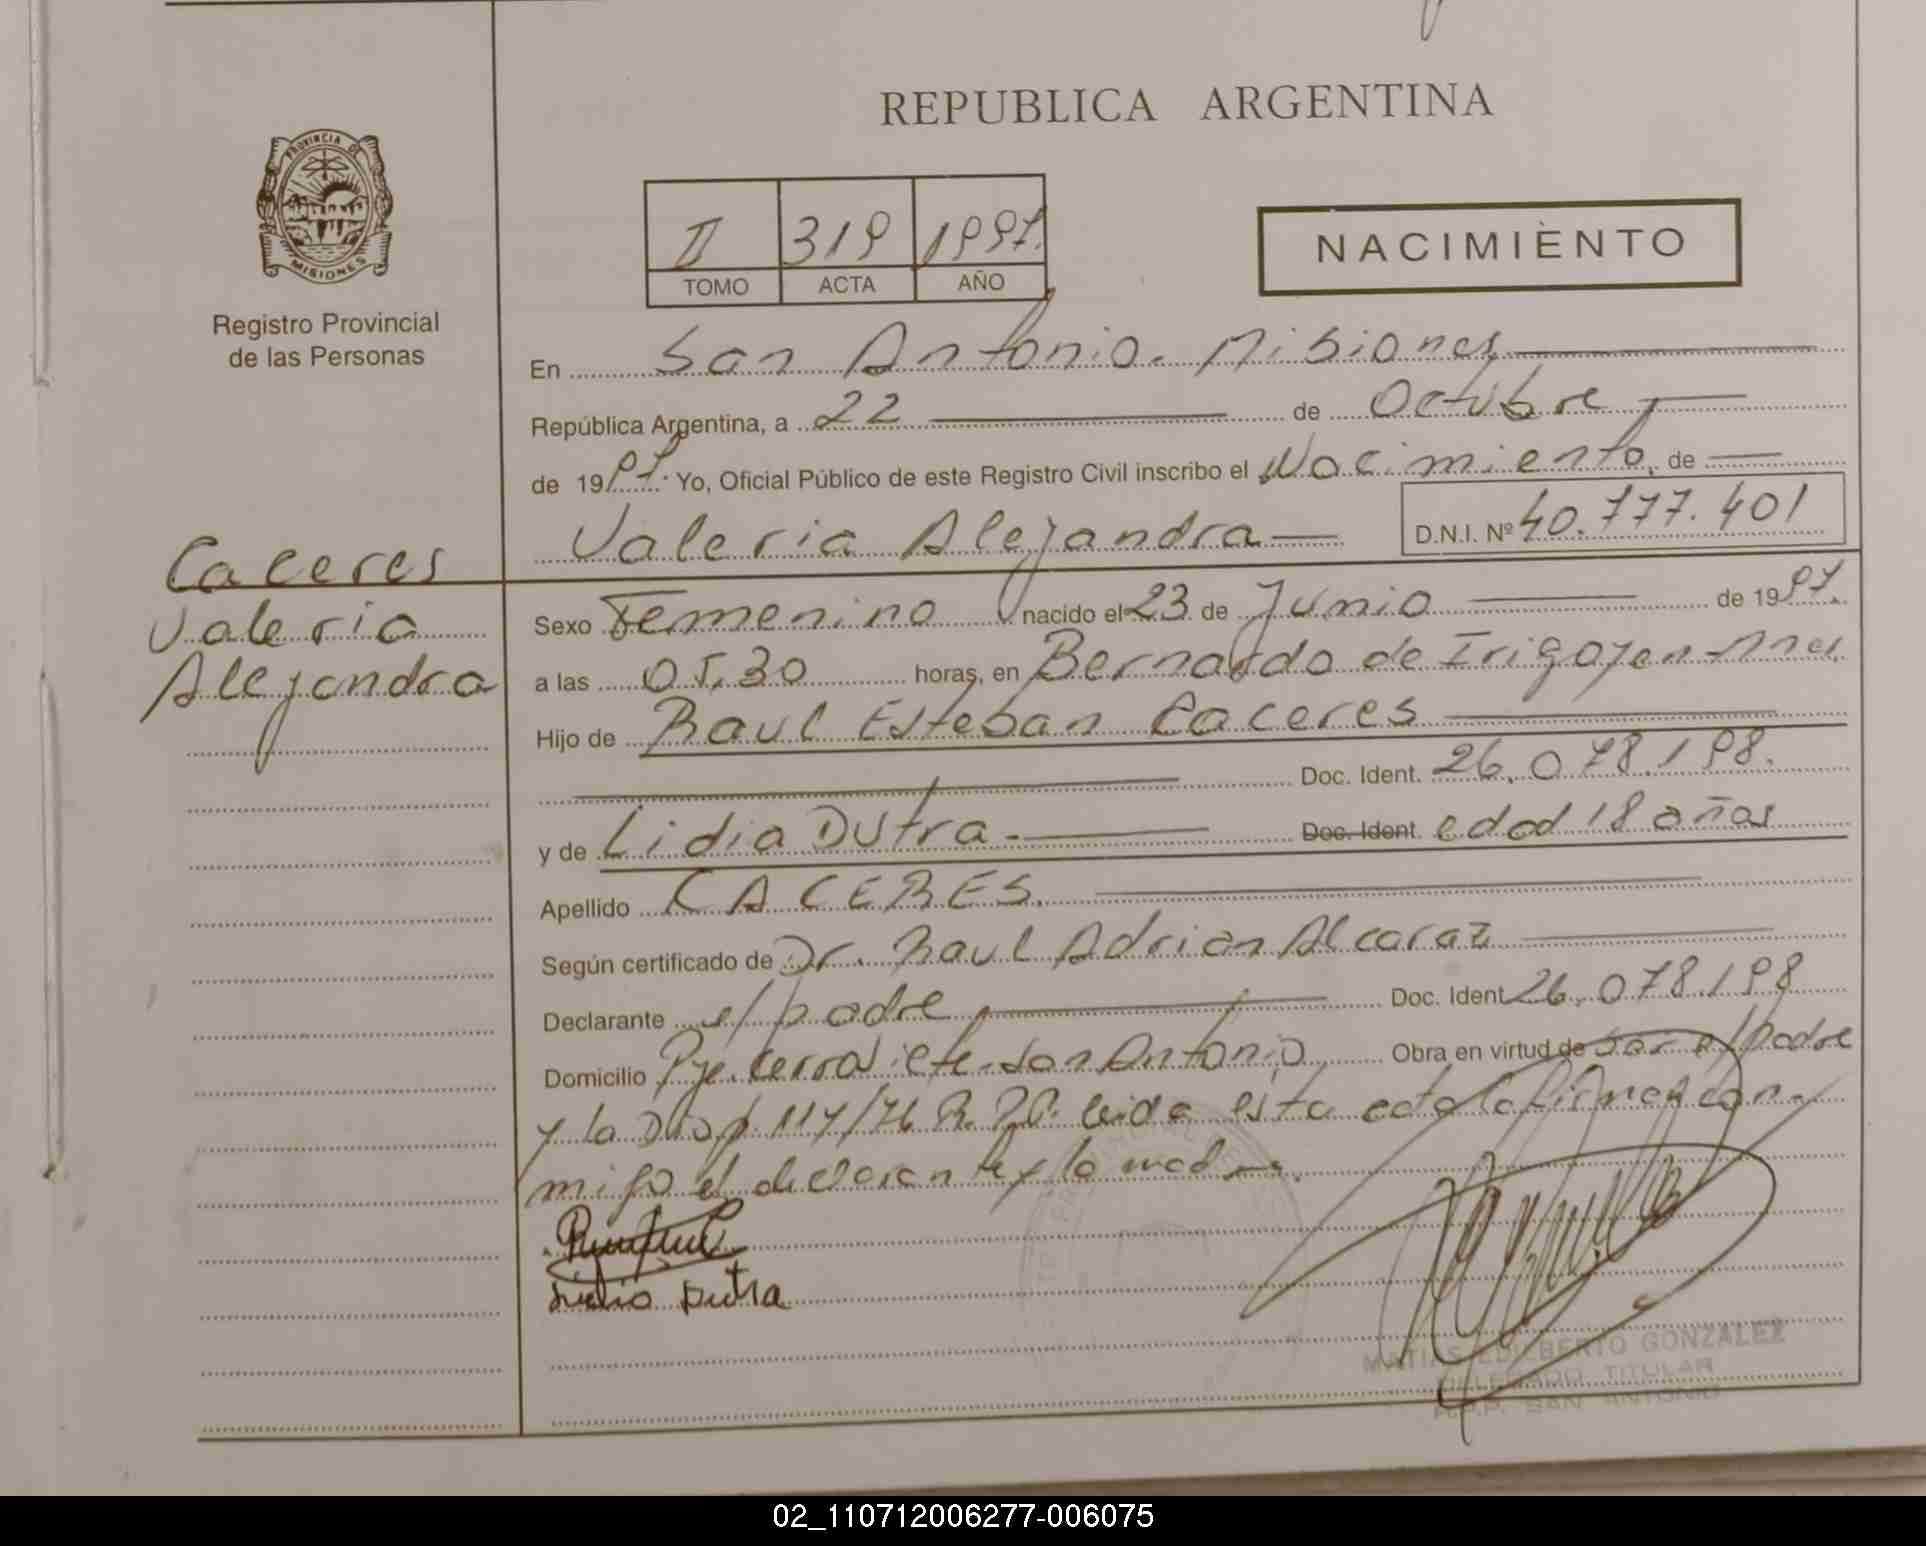 REPUBLICA ARGENTINA
PROVINCIA DE
MISIONES
Registro Provincial
de las Personas
II 319 1997.
TOMO ACTA AÑO
NACIMIENTO
En San Antonio. Misiones
República Argentina, a 22 de Octubre
de 1997. Yo, Oficial Público de este Registro Civil inscribo el Nacimiento, de
Valeria Alejandra D.N.I. Nº 40.777.401
Caceres
Valeria
Alejandra
Sexo Femenino nacido el 23 de Junio de 1997.
a las 05.30 horas, en Bernardo de Irigoyen Mnes.
Hijo de Raul Esteban Caceres
Doc. Ident. 26.078.198.
y de Lidia Dutra Doc. Ident. edad 18 años
Apellido CACERES.
Según certificado de Dr. Raul Adrian Alcaraz
Declarante el padre Doc. Ident. 26.078.198
Domicilio Pje. San Antonio Obra en virtud de ser el padre
y la Disp. 117/76 R.P.P. leida esta acta la firman con
migo el declarante y la madre.
Lidia Dutra
MATIAS EDILBERTO GONZALEZ
DELEGADO TITULAR
R.P.P. SAN ANTONIO
02_110712006277-006075